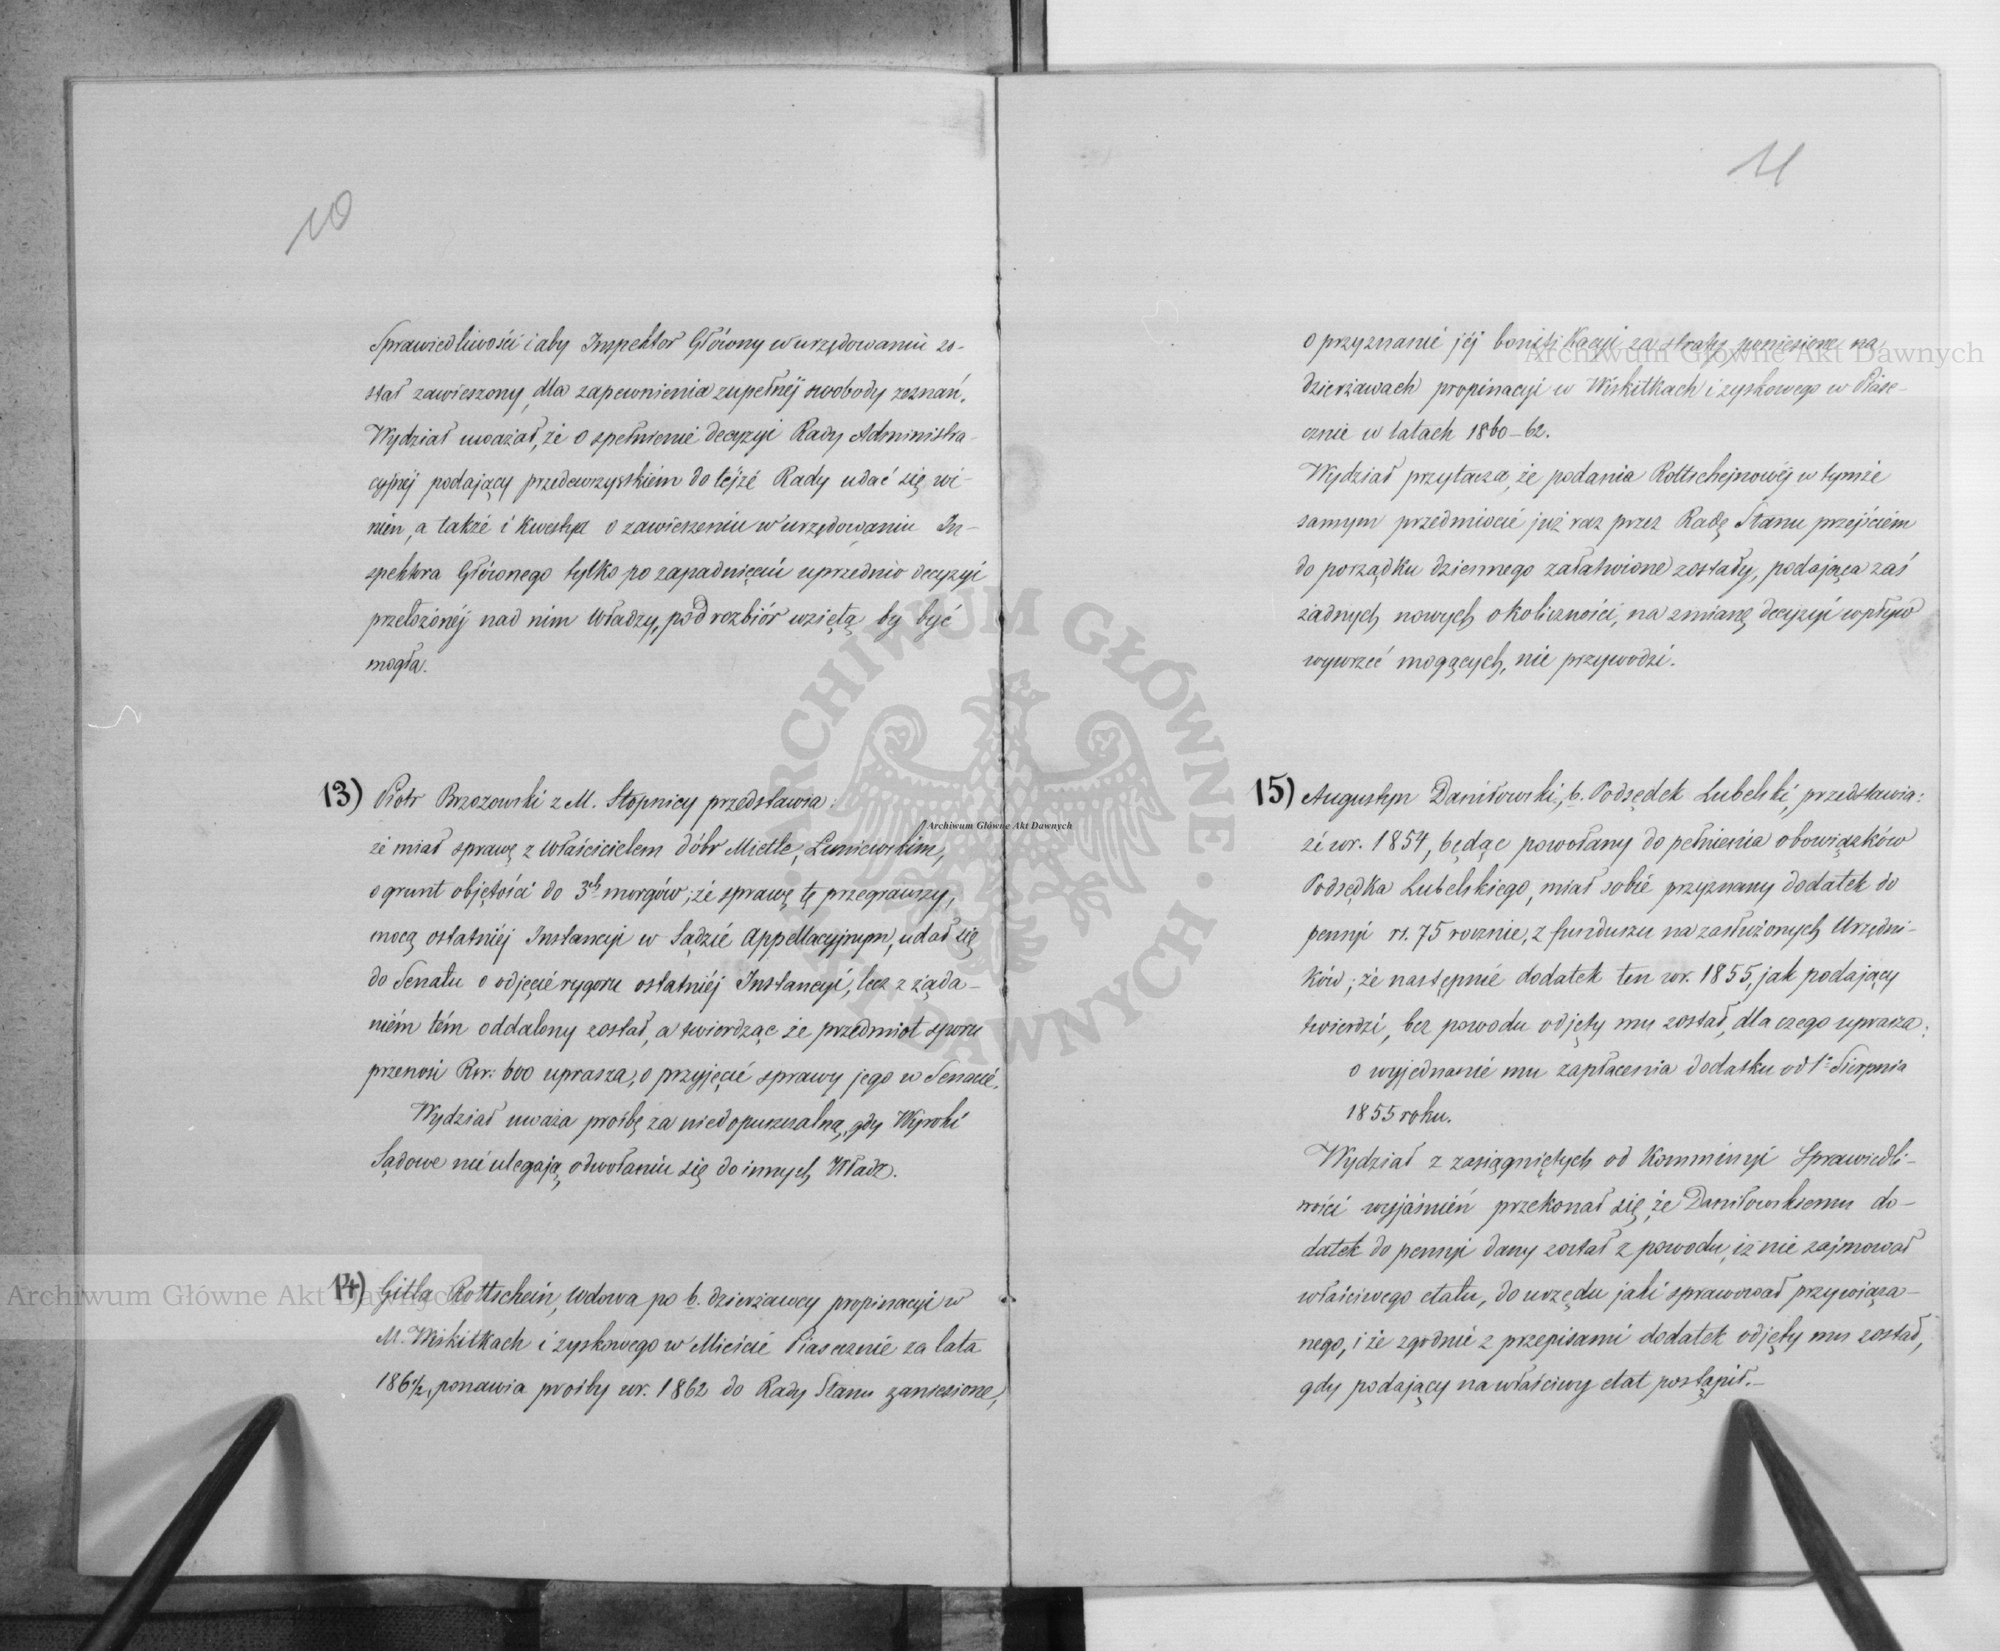 10
Sprawiedliwości i aby Inspektor Główny w urzędowaniu zo-
stał zawieszony, dla zapewnienia zupełnéj swobody zeznań.
Wydział uważał, że o spełnienie decyzyi Rady Administra-
cyjnéj podający przedewszystkiém do téjże Rady udać się wi-
nien, a także i kwestya o zawieszeniu w urzędowaniu In-
spektora Głównego tylko po zapadnięciu uprzednio decyzyi
przełożonéj nad nim Władzy, pod rozbiór wziętą by być
mogła.
13) Piotr Brzozowski z M. Stopnicy przedstawia:
że miał sprawę z Właścicielem dóbr Mietle, Łuniewskim,
o grunt objętości do 3ch morgów; że sprawę tę przegrawszy,
mocą ostatniéj Instancyi w Sądzie Appellacyjnym, udał się
do Senatu o odjęcie rygoru ostatniéj Instancyi, lecz z żąda-
niém tém oddalony został, a twierdząc że przedmiot sporu
przenosi Rsr: 600 uprasza, o przyjęcie sprawy jego w Senacie.
Wydział uważa prośbę za niedopuszczalną, gdy Wyroki
Sądowe nie ulegają odwołaniu się do innych Władz.
14) Gitla Rottschein, Wdowa po b. dzierżawcy propinacyi w
M. Wiskitkach i zyskowego w Mieście Piasecznie za lata
1861/2, ponawia prośby w r. 1862 do Rady Stanu zaniesione,
11
o przyznanie jéj bonifikacyi za straty poniesione na
dzierżawach propinacyi w Wiskitkach i zyskowego w Piase-
cznie w latach 1860-62.
Wydział przytacza, że podania Rottscheinowéj w tymże
samym przedmiocie już raz przez Radę Stanu przejściem
do porządku dziennego załatwione zostały, podająca zaś
żadnych nowych okoliczności, na zmianę decyzyi wpływ
wywrzeć mogących, nie przywodzi.
15) Augustyn Daniłowski, b. Podsędek Lubelski, przedstawia:
że w r. 1854, będąc powołany do pełnienia obowiązków
Podsędka Lubelskiego, miał sobie przyznany dodatek do
pensyi rs. 75 rocznie, z funduszu na zasłużonych Urzędni-
ków; że następnie dodatek ten w r. 1855, jak podający
twierdzi, bez powodu odjęty mu został, dla czego uprasza:
o wyjednanie mu zapłacenia dodatku od 1° Sierpnia
1855 roku.
Wydział z zasiągniętych od Kommissyi Sprawiedli-
wości wyjaśnień przekonał się, że Daniłowskiemu do-
datek do pensyi dany został z powodu, iż nie zajmował
właściwego etatu, do urzędu jaki sprawował przywiąza-
nego, i że zgodnie z przepisami dodatek odjęty mu został,
gdy podający na właściwy etat postąpił.-
Archiwum Główne Akt Dawnych
Archiwum Główne Akt Dawnych
Archiwum Główne Akt Dawnych
ARCHIWUM GŁÓWNE AKT DAWNYCH